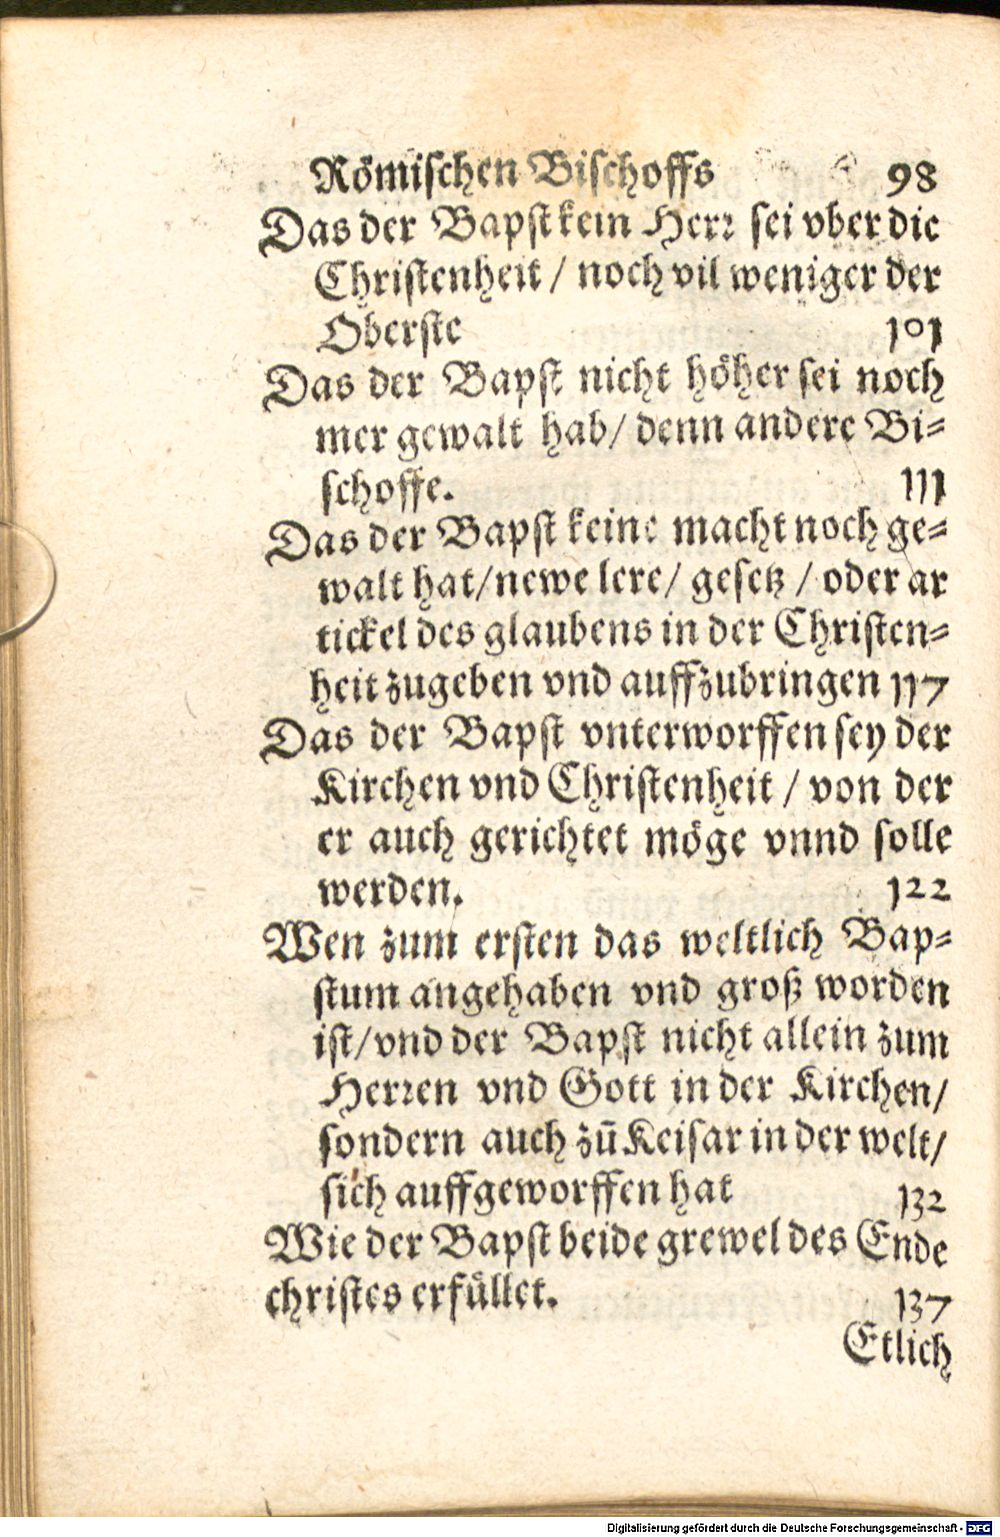 Römischen Bischoffs 98
Das der Bapst kein Herr sei vber die
Christenheit / noch vil weniger der
Oberste 101
Das der Bapst nicht höher sei noch
mer gewalt hab / denn andere Bi-
schoffe. 111
Das der Bapst keine macht noch ge-
walt hat / newe lere / gesetz / oder ar
tickel des glaubens in der Christen-
heit zugeben vnd auffzubringen 117
Das der Bapst vnterworffen sey der
Kirchen vnd Christenheit / von der
er auch gerichtet möge vnnd solle
werden. 122
Wen zum ersten das weltlich Bap-
stum angehaben vnd groß worden
ist / vnd der Bapst nicht allein zum
Herren vnd Gott in der Kirchen /
sondern auch zū Keisar in der welt /
sich auffgeworffen hat 132
Wie der Bapst beide grewel des Ende
christes erfüllet. 137
Etlich
Digitalisierung gefördert durch die Deutsche Forschungsgemeinschaft - DFG